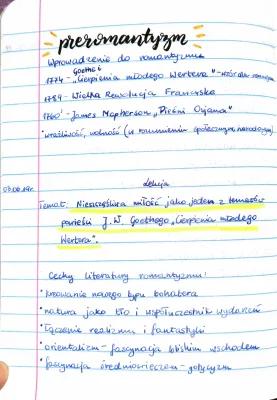 preromantyzm
Wprowadzenie do romantyzmu
Goethe i
1774 - „Cierpienia młodego Wertera” - wzór dla
1789 - Wielka Rewolucja Francuska
1760 - James Mcpherson „Pieśni Osjana”
wrażliwość, wolność (w rozumieniu społecznym, narodowym)
Lekcja
Temat: Nieszczęśliwa miłość jako jeden z tematów
powieści J.W. Goethego „Cierpienia młodego
Wertera”.
Cechy literatury romantyzmu:
• kreowanie nowego typu bohatera
• natura jako tło i współuczestnik wydarzeń
• łączenie realizmu i fantastyki
• orientalizm - fascynacja bliskim wschodem
• fascynacja średniowieczem - gotycyzm